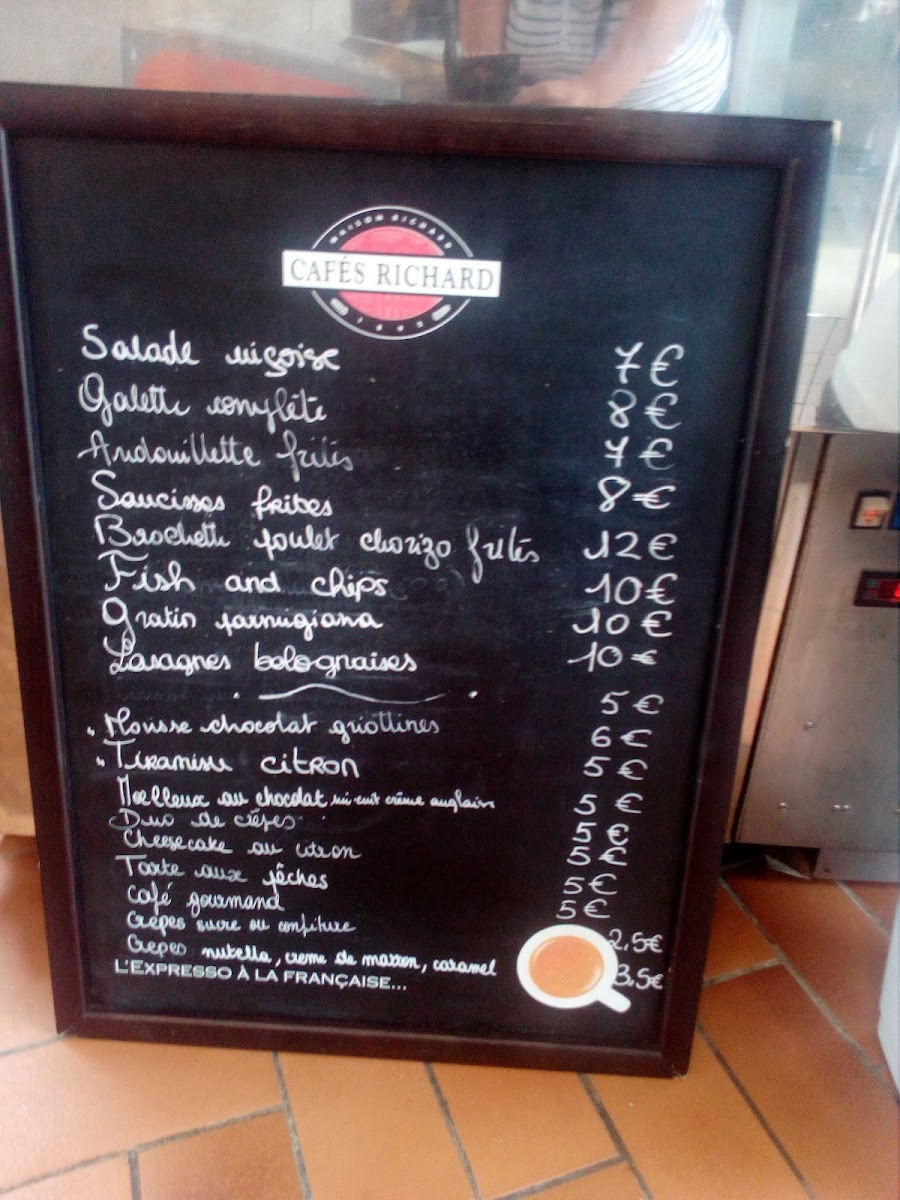 MAISON RICHARD
CAFÉS RICHARD
1892
Salade niçoise 7€
Galette complète 8€
Andouillette frites 7€
Saucisses frites 8€
Brochette poulet chorizo frites 12€
Fish and chips 10€
Gratin parmigiana 10€
Lasagnes bolognaises 10€
Mousse chocolat griottines 5€
Tiramisu citron 6€
Moelleux au chocolat mi cuit crème anglaise 5€
Duo de crêpes 5€
Cheesecake au citron 5€
Tarte aux pêches 5€
Café gourmand 5€
5€
Crêpes sucre ou confiture 2,5€
Crepes nutella, creme de marron, caramel 3,5€
L'EXPRESSO À LA FRANÇAISE...